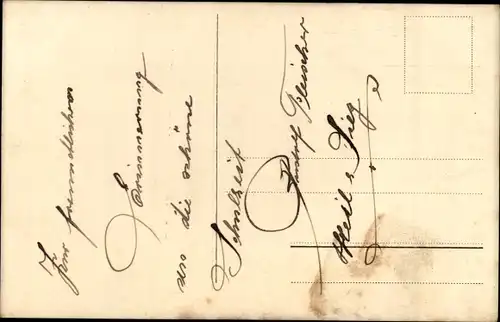 Zur freundlichen
Erinnerung
an die schöne
Schulzeit
Rudolf Fleischer
Heil u. Sieg